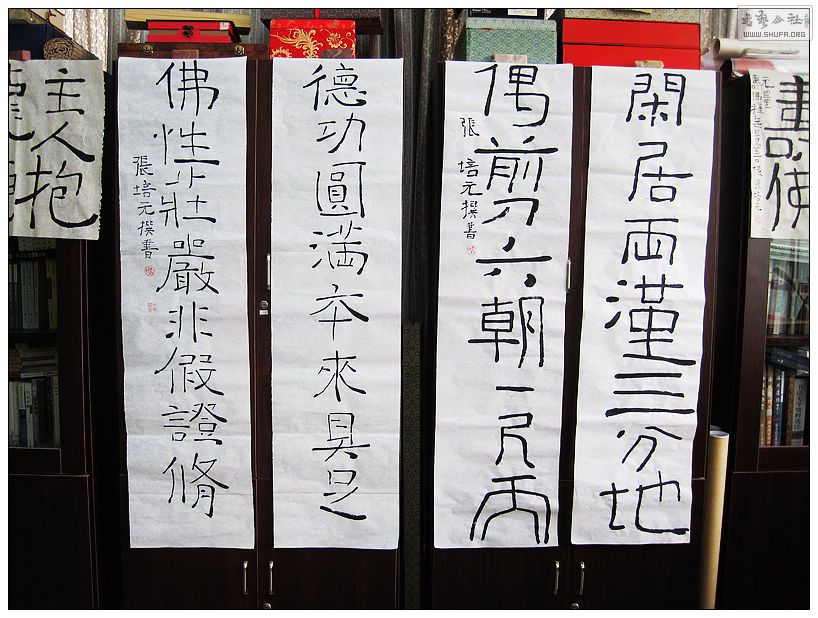 書藝公社
WWW.SHUFA.ORG
閑居両漢三分地
偶剪六朝一尺丙
張培元撰書
德功圓滿本來具足
佛性莊嚴非假證脩
張培元撰書
主人抱